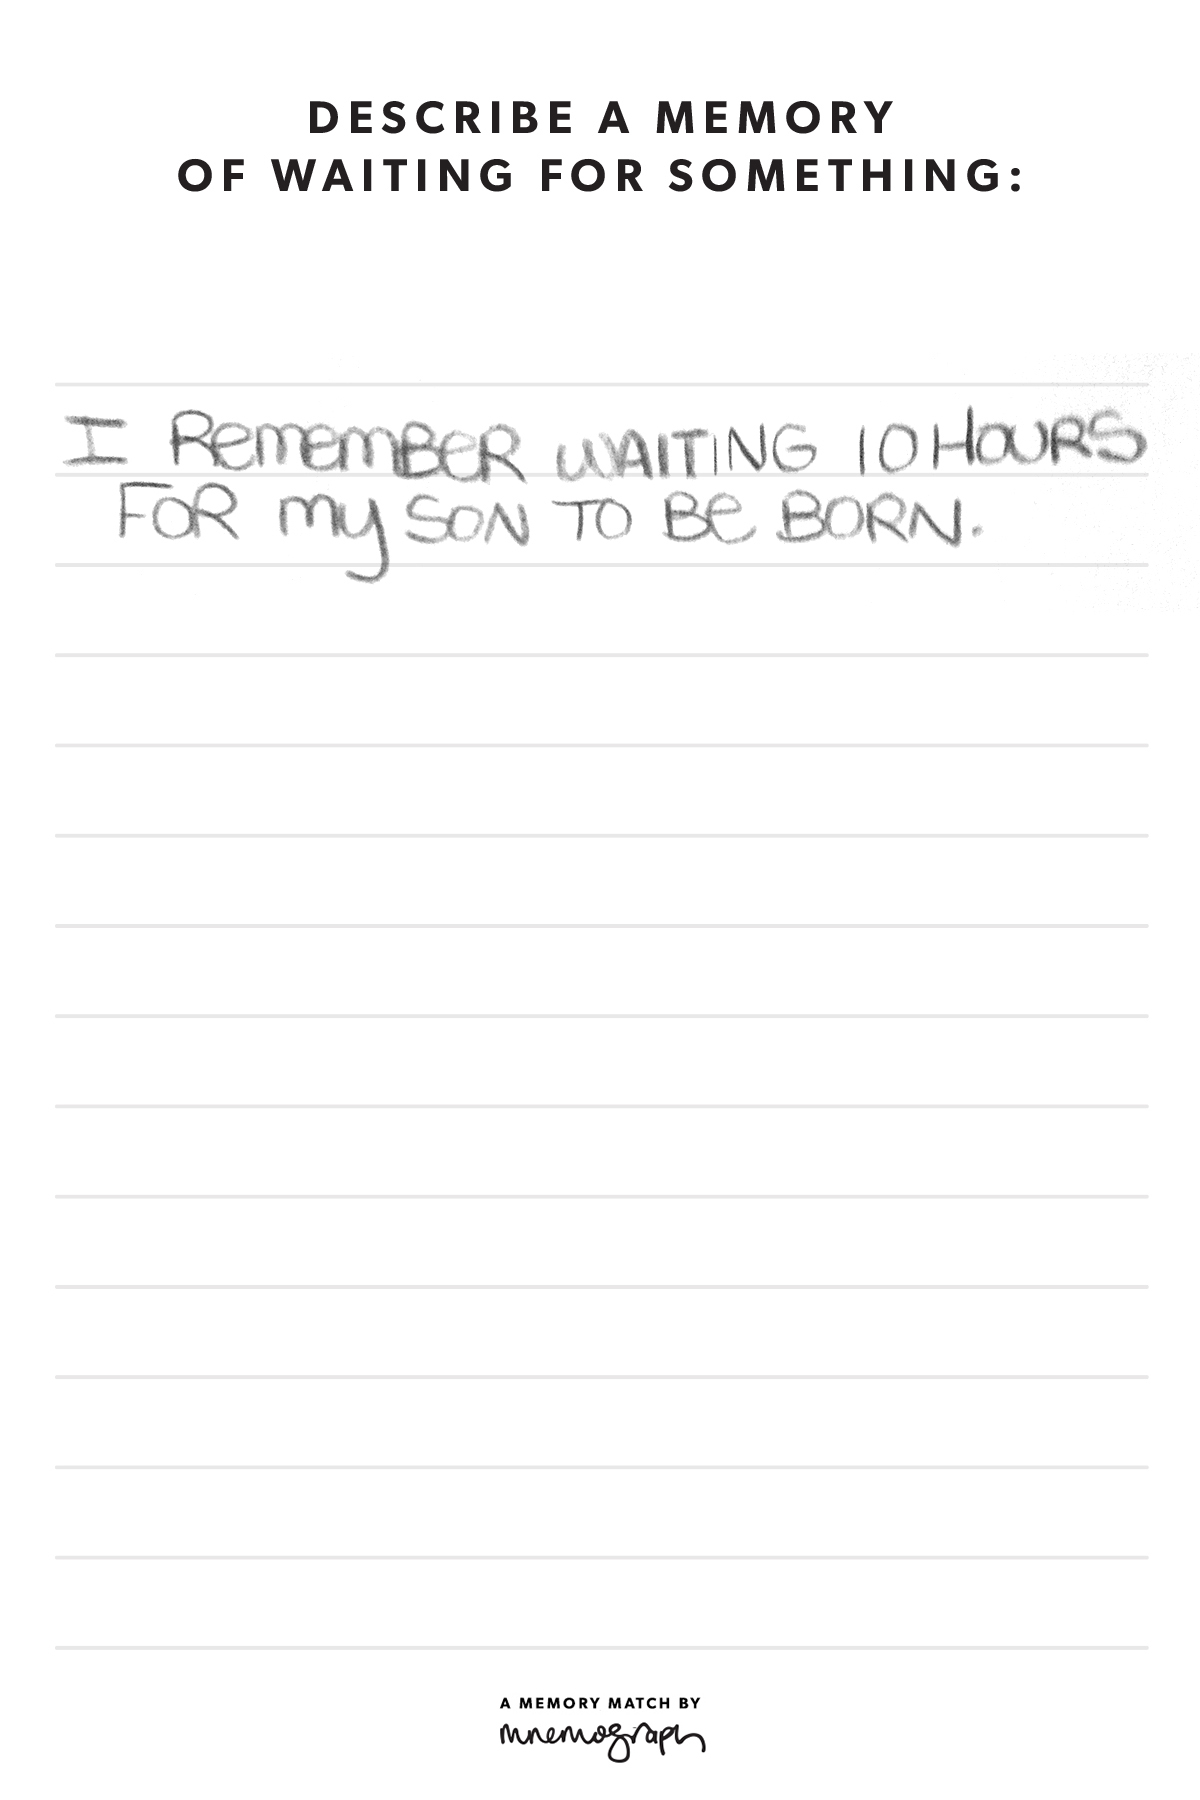 DESCRIBE A MEMORY
OF WAITING FOR SOMETHING:
I REMEMBER WAITING 10 HOURS
FOR MY SON TO BE BORN.
A MEMORY MATCH BY
mnemograph